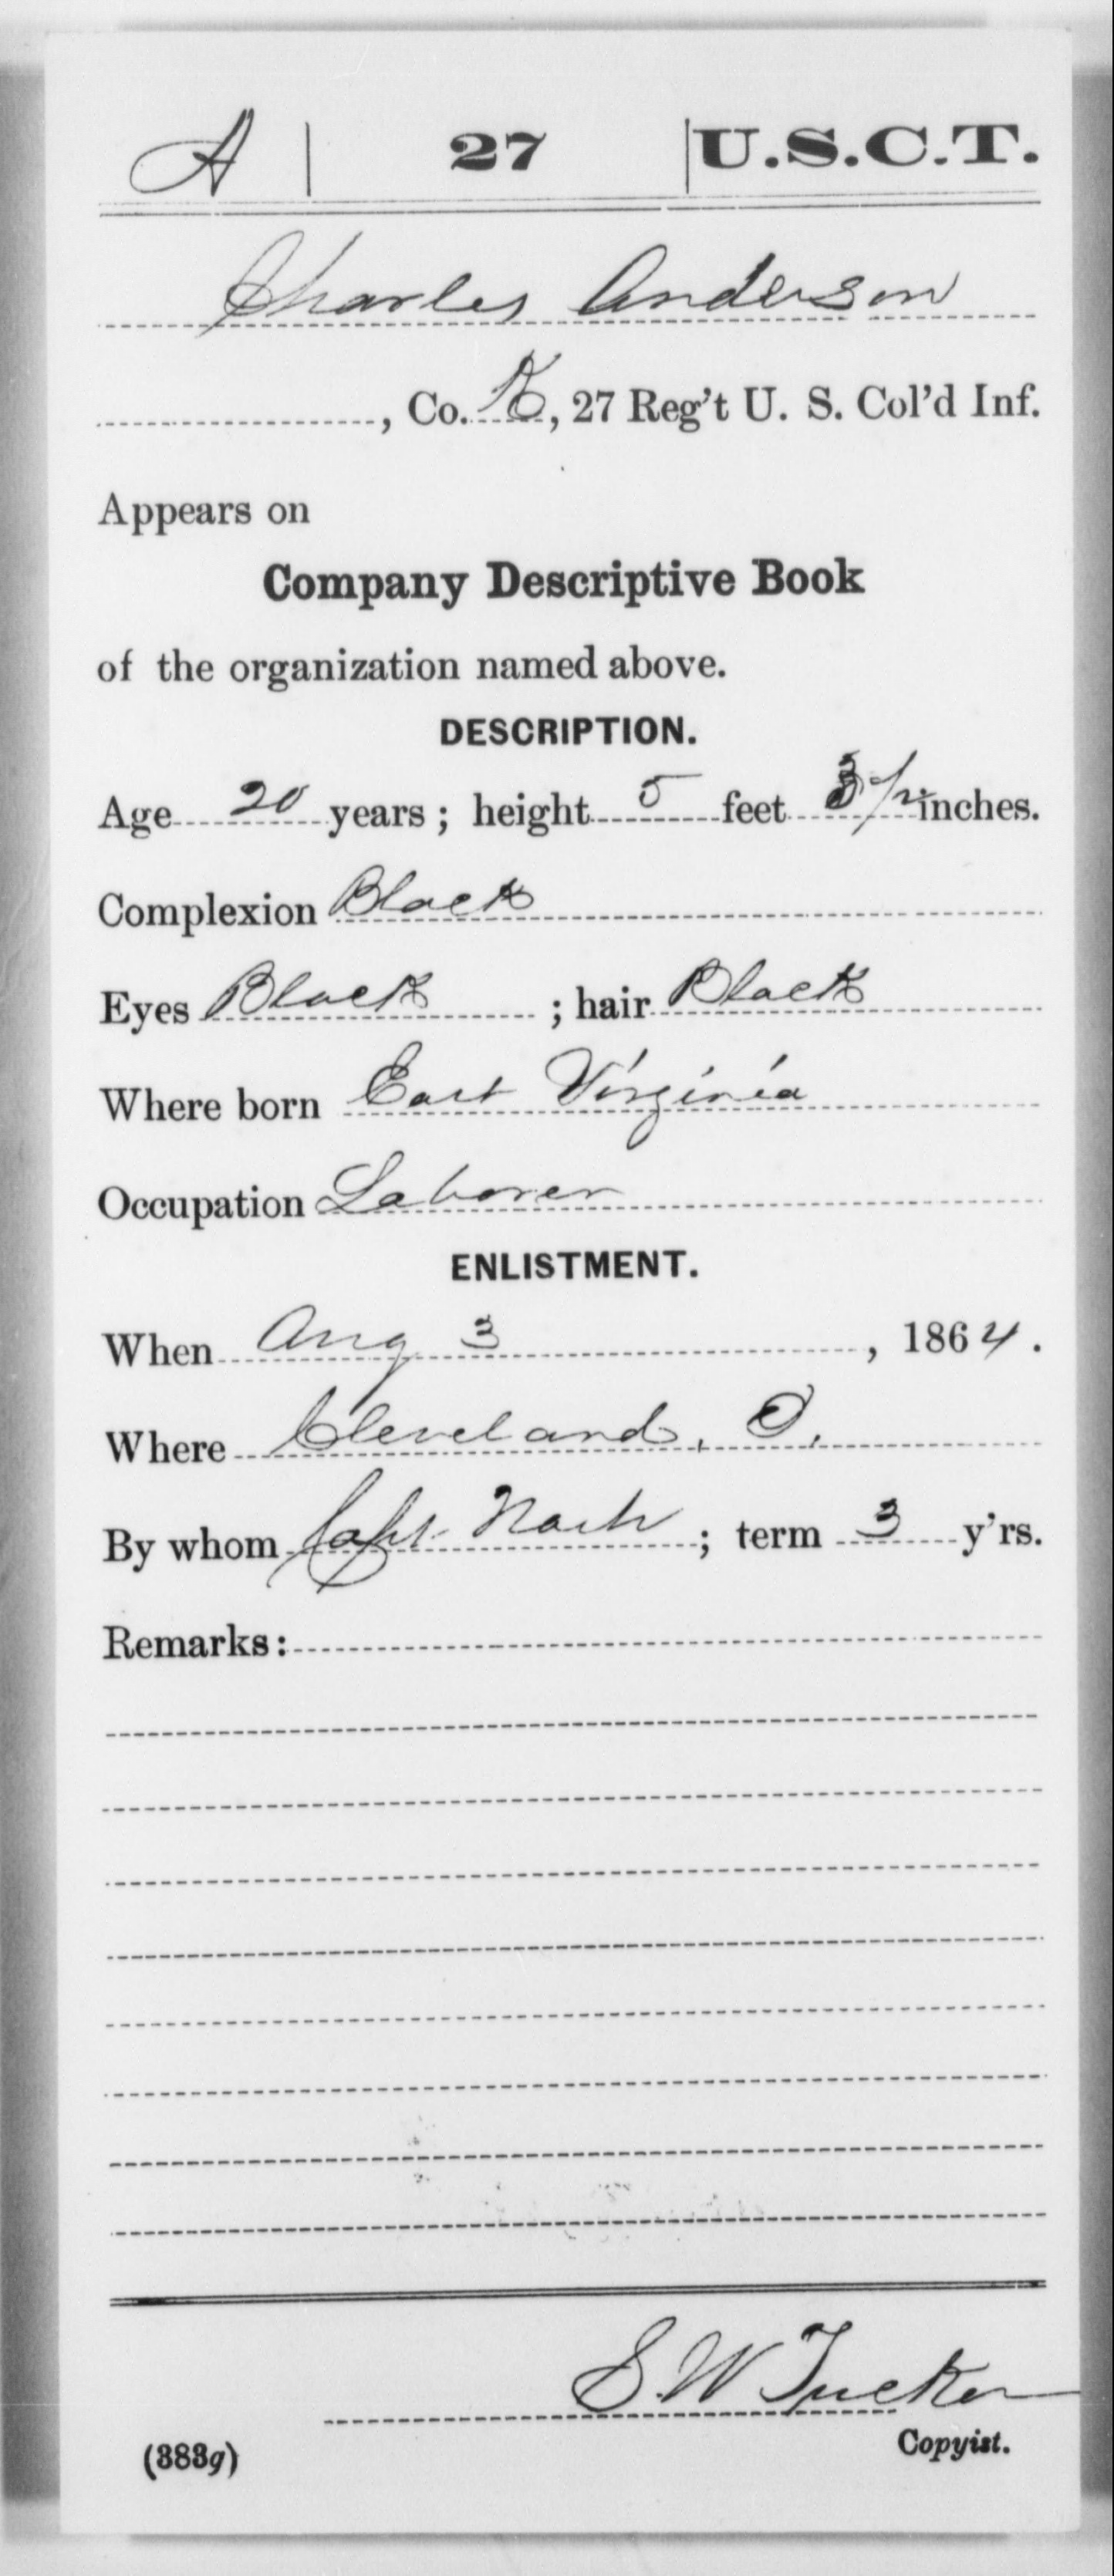 A | 27 | U.S.C.T.
Charles Anderson
, Co. K, 27 Reg't U. S. Col'd Inf.
Appears on
Company Descriptive Book
of the organization named above.
DESCRIPTION.
Age 20 years; height 5 feet 3 1/2 inches.
Complexion Black
Eyes Black ; hair Black
Where born East Virginia
Occupation Laborer
ENLISTMENT.
When Aug 3, 1864.
Where Cleveland, O.
By whom Capt. Nash; term 3 y'rs.
Remarks:
S. W. Tucker
Copyist.
(383g)